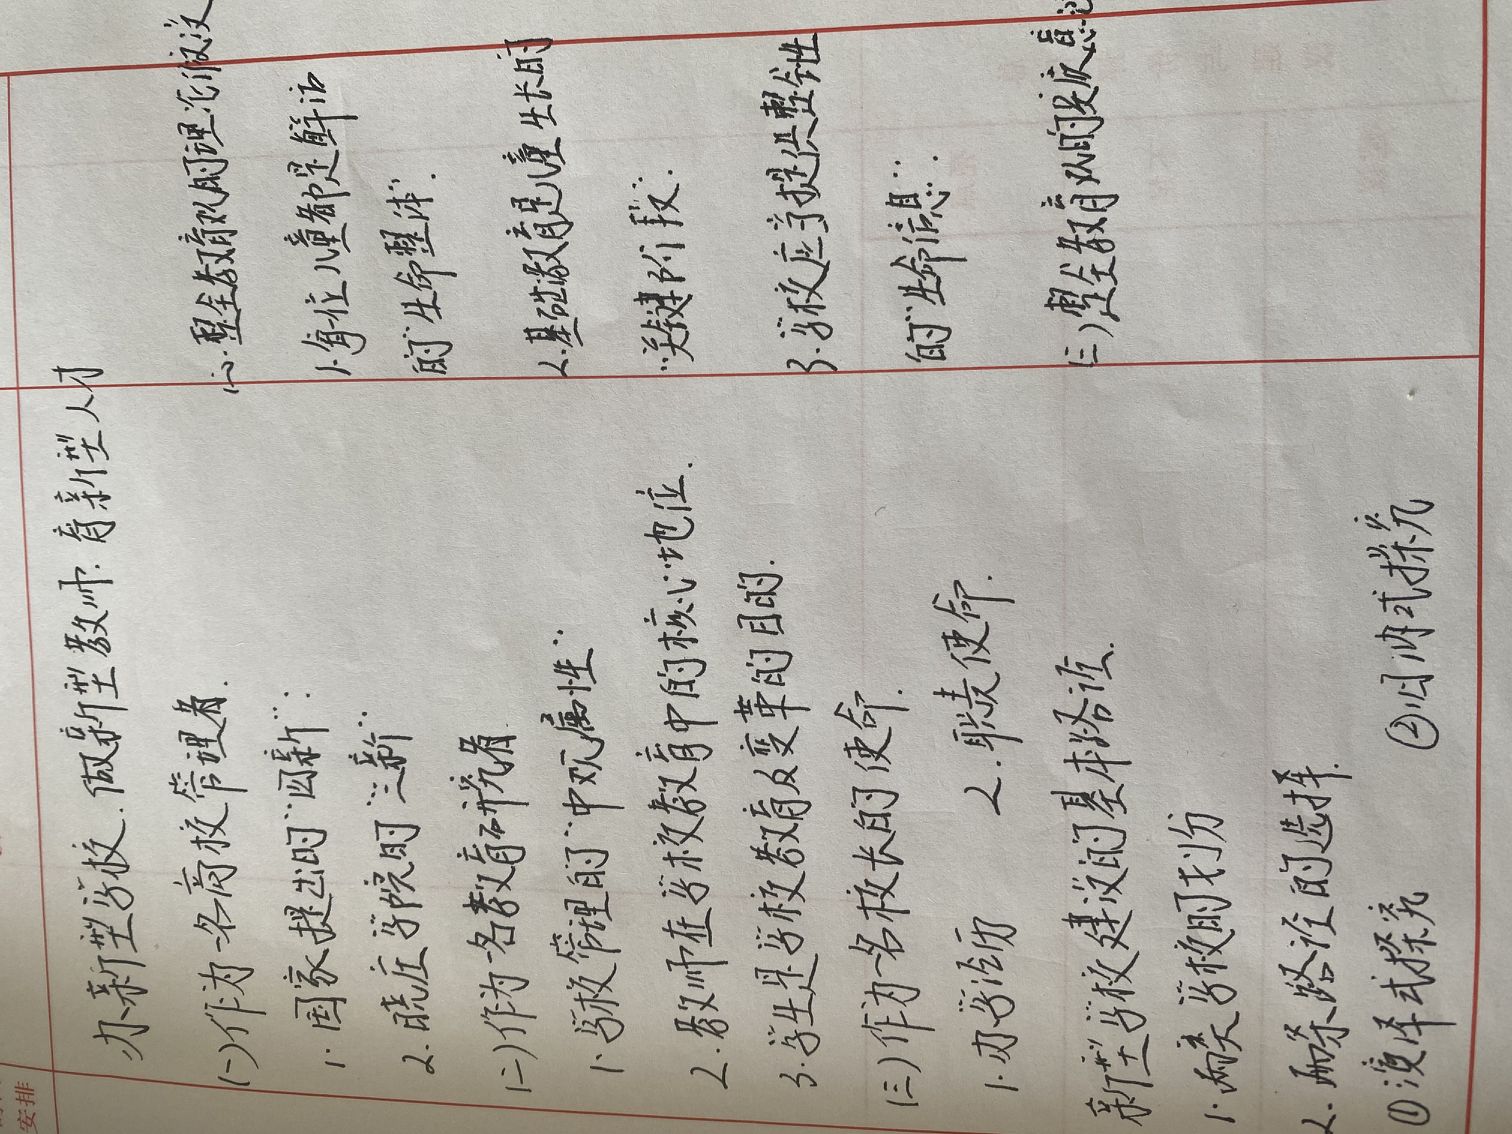 安排
办新型学校.做新型教师.育新型人才
(一)作为一名高校管理者.
1.国家提出的"四新":
2.晓庄学院的"三新":
(二)作为一名教育研究者
1.学校管理的"中观属性":
2.教师在学校教育中的核心地位.
3.学生是学校教育及变革的目的.
(三)作为一名校长的使命.
1.办学经历 2.职责使命.
新型学校建设的基本路径.
1.两类学校的划分
2.两条路径的选择.
①演绎式探究 ②归纳式探究
(二).整全教育观的理论假设
1.每位儿童都是鲜活
的"生命整体".
2.基础教育是儿童生长的
"关键阶段".
3.学校应当提供整全性
的"生命信息":
(三)整全教育观的